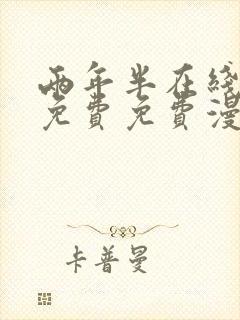 兩年半在綫
免費免費漫
卡普曼